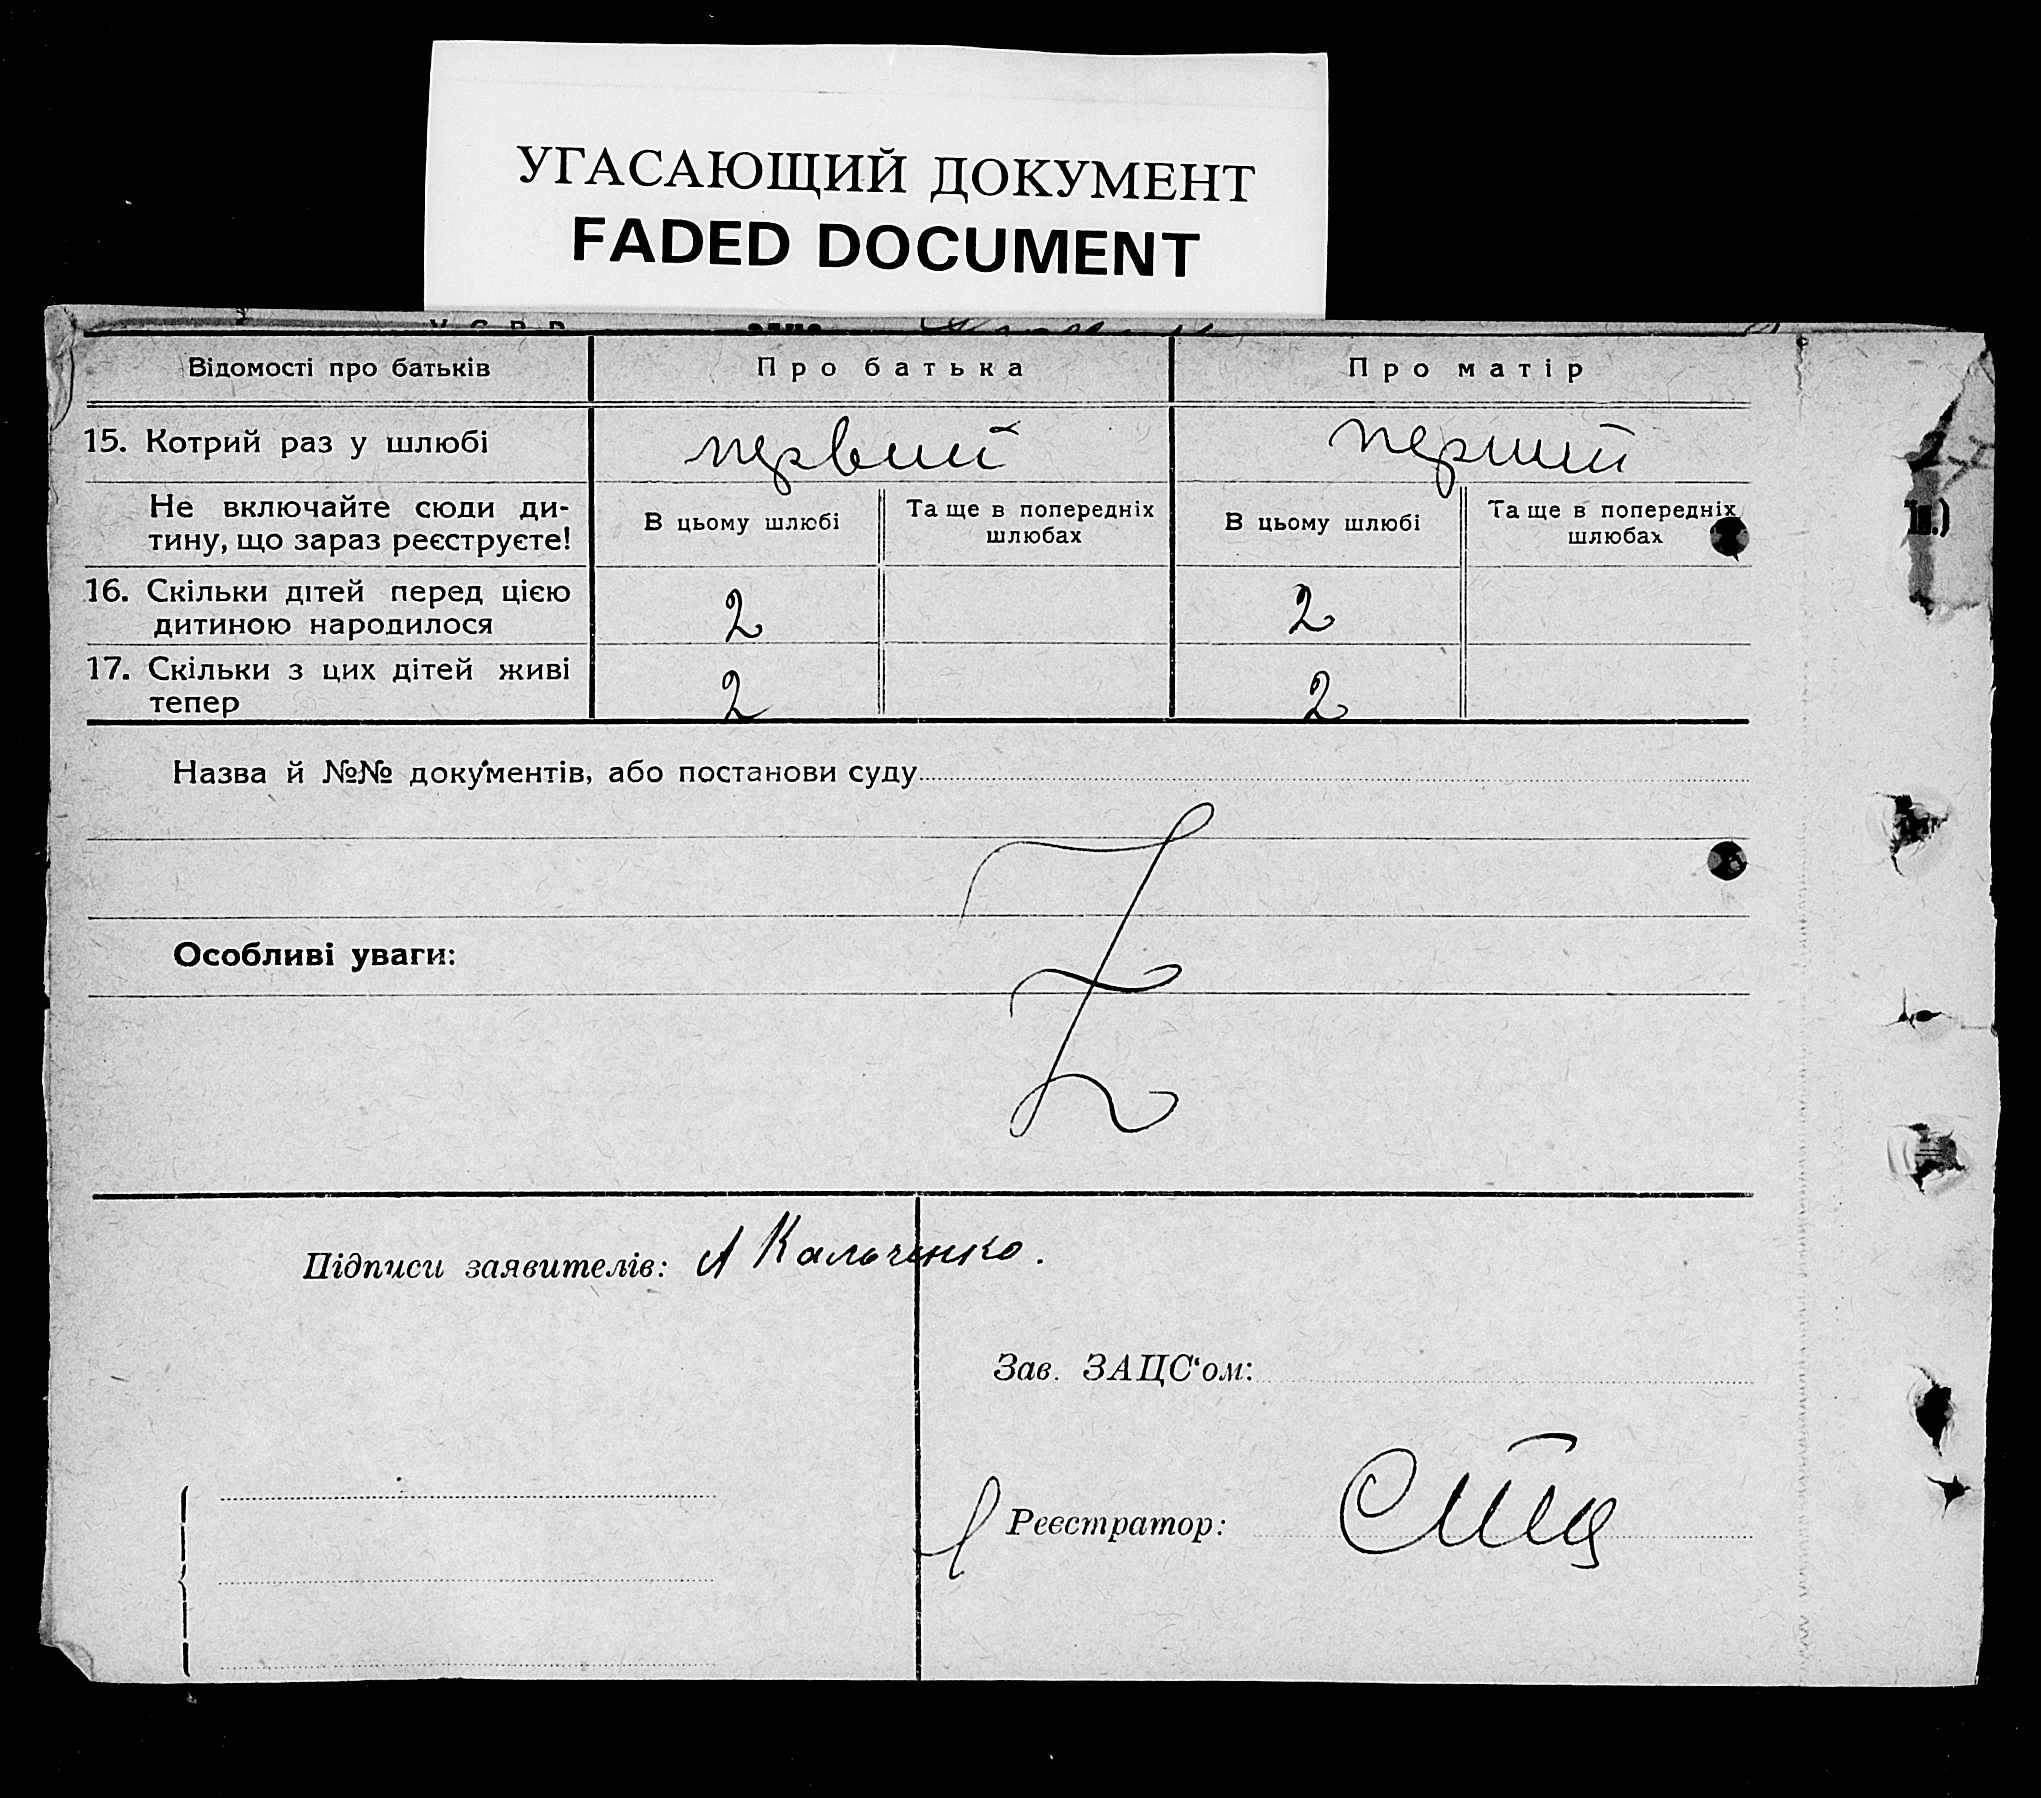 УГАСАЮЩИЙ ДОКУМЕНТ
FADED DOCUMENT
Відомості про батьків Про батька Про матір
15. Котрий раз у шлюбі первий перший
Не включайте сюди ди-
тину, що зараз реєструєте!
В цьому шлюбі
Та ще в попередніх
шлюбах
В цьому шлюбі
Та ще в попередніх
шлюбах
16. Скільки дітей перед цією
дитиною народилося 2 2
17. Скільки з цих дітей живі
тепер 2 2
Назва й №№ документів, або постанови суду
Особливі уваги:
Підписи заявителів: А Кальченко.
Зав. ЗАЦС‘ом:
Реєстратор: